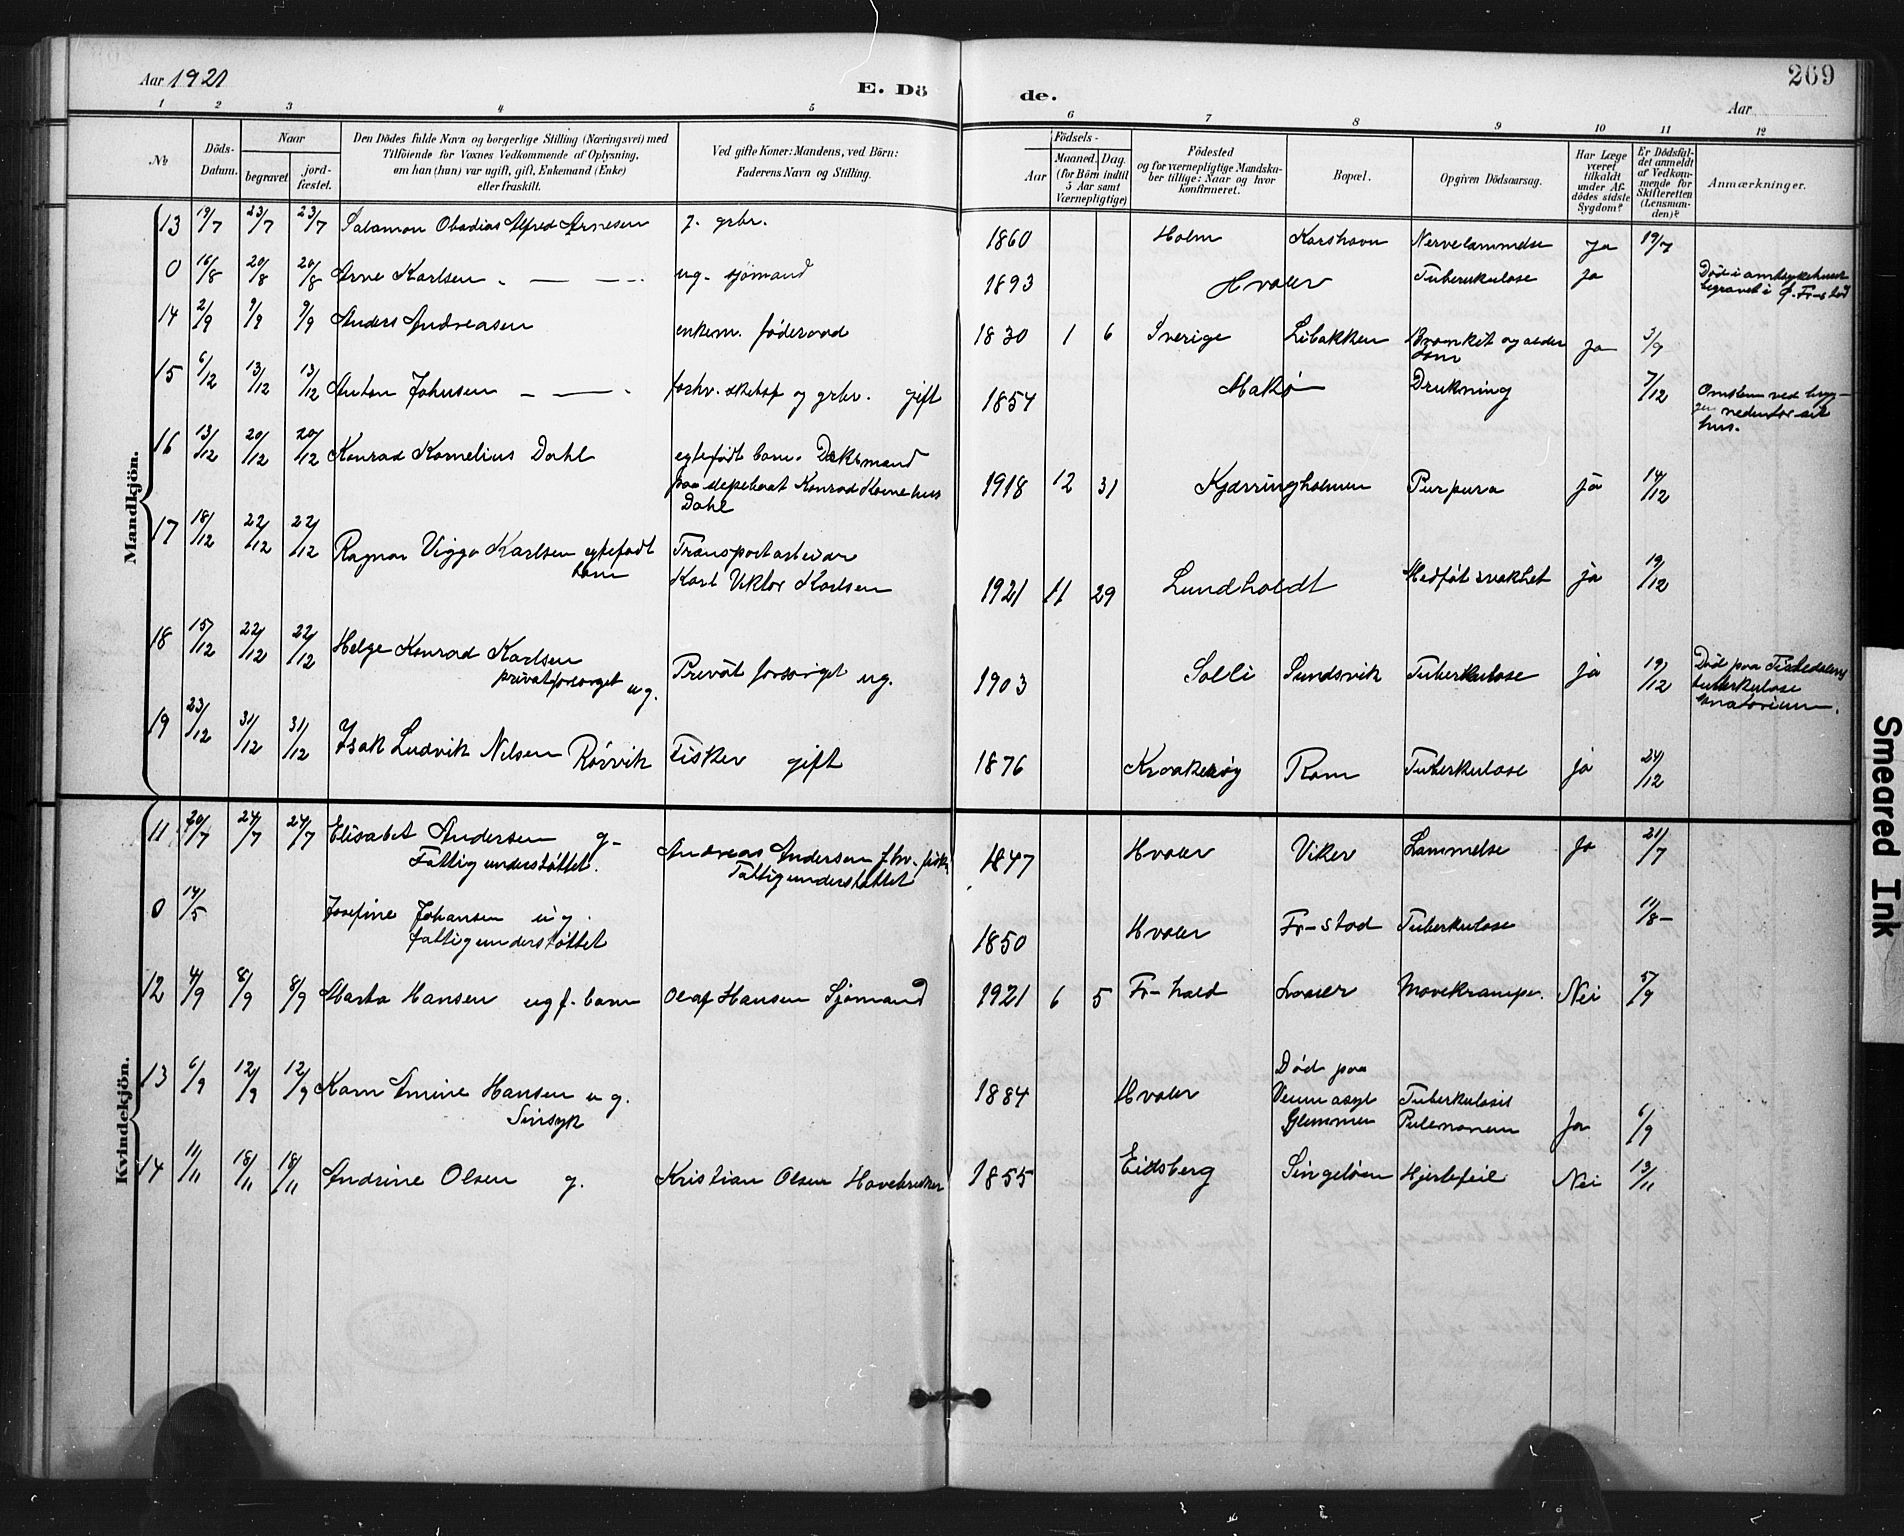 Aar 1921
E. Dö
de.
269
Aar
1 2 3 4 5 6 7 8 9 10 11 12
No
Döds-
Datum.
Naar
begravet
jord-
fæstet.
Den Dödes fulde Navn og borgerlige Stilling (Næringsvei) med
Tilföiende for Voxnes Vedkommende af Oplysning,
om han (hun) var ugift, gift, Enkemand (Enke)
eller fraskilt.
Ved gifte Koner: Mandens, ved Börn:
Faderens Navn og Stilling.
Födsels-
Aar
Maaned. Dag.
(for Börn indtil
5 Aar samt
Værnepligtige)
Födested
og for værnepligtige Mandska-
ber tillige: Naar og hvor
konfirmeret.
Bopæl.
Opgiven Dödsaarsag.
Har Læge
været
tilkaldt
under Af-
dödes sidste
Sygdom?
Er Dödsfal-
det anmeldt
af Vedkom-
mende for
Skifteretten
(Lensman-
den)?
Anmærkninger.
Mandkjön.
13 19/7 23/7 23/7 Salamon Obadias Alfred Arnesen g. grbr. 1860 Holm Korshavn Nervelammelse Ja 19/7
0 16/8 20/8 20/8 Arne Karlsen ug. sjømand 1893 Hvaler Tuberkulose Ja Død i amtssykehuset
begravet i Ø. Fr-stad
14 2/9 9/9 9/9 Anders Andreasen enkem. føderaad 1830 1 6 Sverige Libakken Bronkit og alder
dom Ja 3/9
15 6/12 13/12 13/12 Anton Johnsen forhv. og grbr. gift 1854 Makø Drukning 7/12 Omkom ved bryg-
gen nedenfor sit
hus.
16 13/12 20/12 20/12 Konrad Kornelius Dahl egtefødt barn. Dæksmand
paa slepebaat Konrad Kornelius
Dahl 1918 12 31 Kjærringholmen Purpura ja 14/12
17 18/12 22/12 22/12 Ragnar Viggo Karlsen egtefødt
barn Transportarbeider
Karl Viktor Karlsen 1921 11 29 Lundholdt Medføt svakhet ja 19/12
18 15/12 22/12 22/12 Helge Konrad Karlsen
privatforsørget ug. Privat forsørget ug. 1903 Solli Sundsvik Tuberkulose ja 19/12 Død paa Tistedalens
tuberkulose
sanatorium.
19 23/12 31/12 31/12 Isak Ludvik Nilsen Rørvik Fisker gift 1876 Kraakerøy Rom Tuberkulose ja 24/12
Kvindekjön.
11 20/7 24/7 24/7 Elisabet Andersen g.
Fattigunderstøttet. Andreas Andersen fhv. fisk.
Fattigunderstøttet 1847 Hvaler Viker Lammelse Ja 21/7
0 14/5 Josefine Johansen ug.
fattigunderstøttet 1850 Hvaler Fr-stad Tuberkulose 11/8
12 4/9 8/9 8/9 Marta Hansen ug f. barn Olaf Hansen Sjømand 1921 6 5 Fr-hald Mavekrampe. Nei 5/9
13 6/9 12/9 12/9 Karn Amine Hansen ug.
Sinsyk 1884 Hvaler Død paa
Veum asyl
Glemmen Tuberkulosis
Pulmonum Ja 6/9
14 11/11 18/11 18/11 Andrine Olsen g. Kristian Olsen 1855 Eidsberg Singeløen Hjertefeil Nei 13/11
Smeared Ink